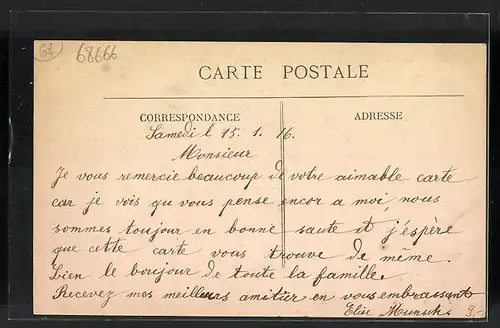 68
68666
CARTE POSTALE
CORRESPONDANCE
ADRESSE
Samedi l 15. 1. 16.
Monsieur
Je vous remercie beaucoup de votre aimable carte
car je vois qu vous pense encor a moi, nous
sommes toujour en bonne saute et j'espère
que cette carte vous trouve de même.
Bien le boujour de toute la famille.
Recevez mes meilleurs amitier en vous embrassant
Elise
9-